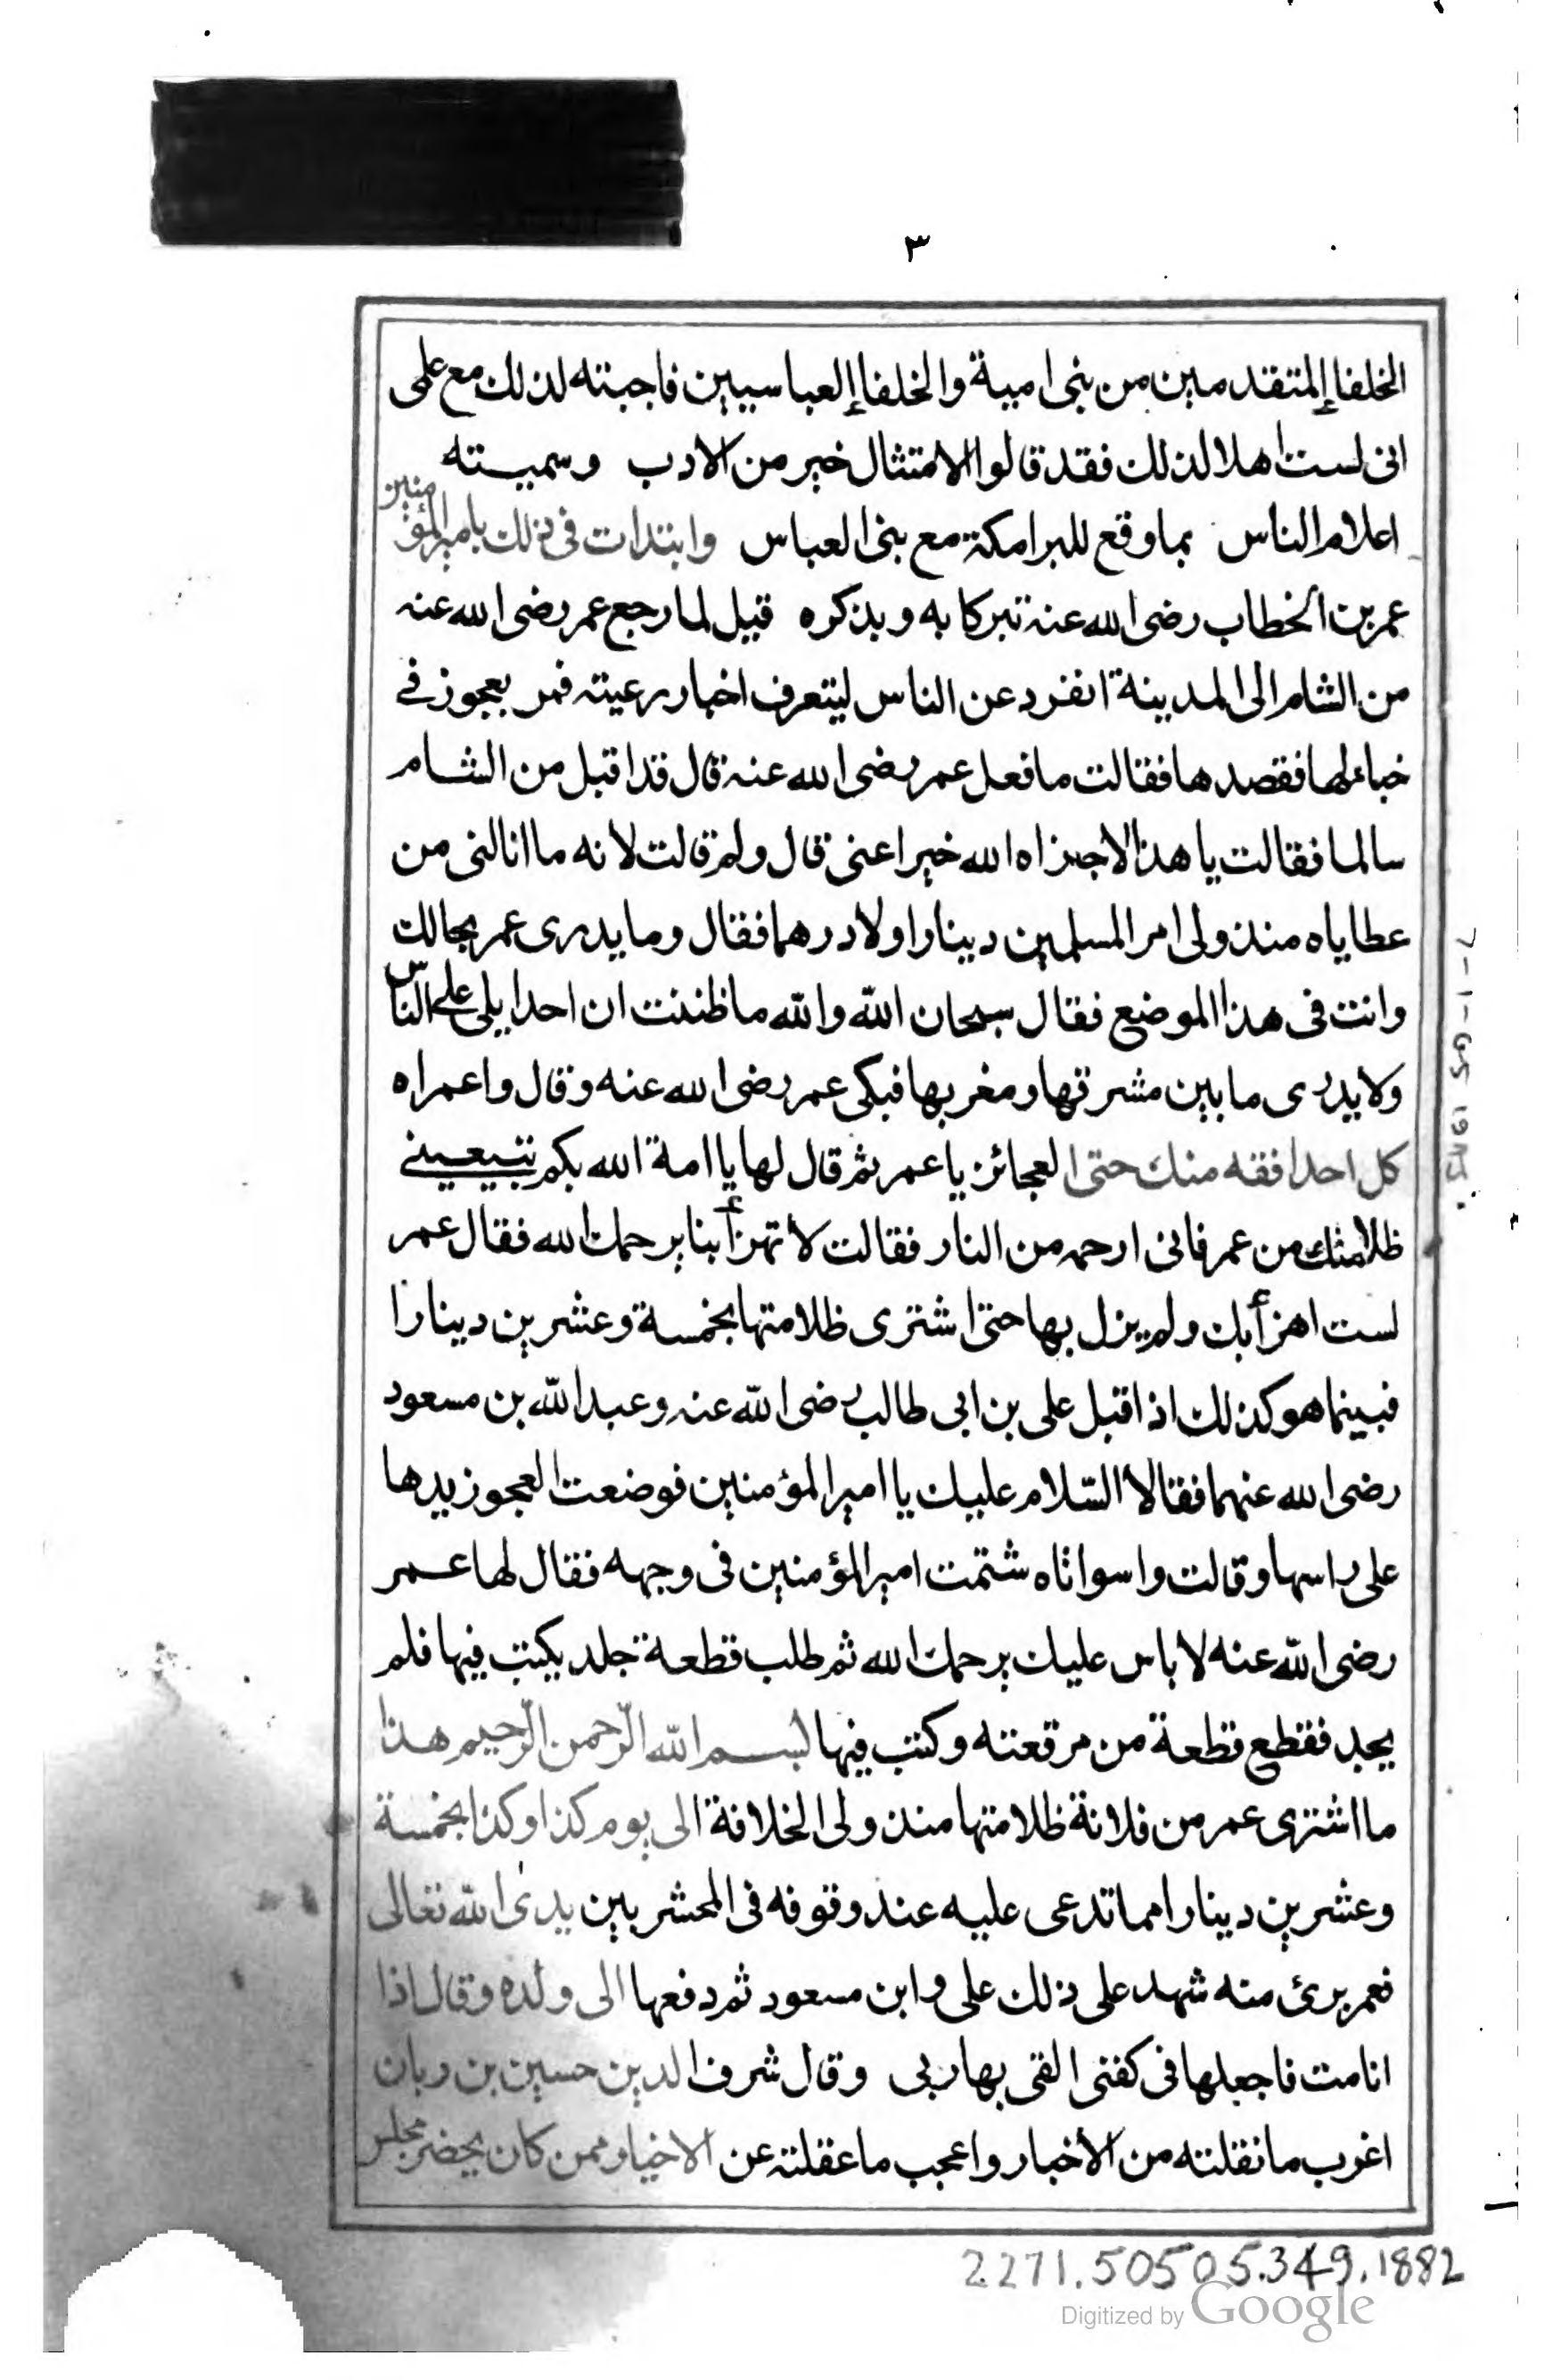 ٣
الخلفاء المتقدمين من بنى امية والخلفاء العباسيين فاجبته لذلك مع علمى
انى لست اهلا لذلك فقد قالوا الامتثال خير من الادب وسميته
اعلام الناس بما وقع للبرامكة مع بنى العباس وابتدات فى ذلك بامير المؤمنين
عمر بن الخطاب رضى الله عنه تبركا به وبذكره قيل لما رجع عمر رضى الله عنه
من الشام الى المدينة انفرد عن الناس ليتعرف اخبار رعيته فمر بعجوز فى
خباء لها فقصدها فقالت ما فعل عمر رضى الله عنه قال قد اقبل من الشام
سالما فقالت يا هذا لا جزاه الله خيرا عنى قال ولم قالت لانه ما انالنى من
عطاياه منذ ولى امر المسلمين دينارا ولا درهما فقال وما يدرى عمر بحالك
وانت فى هذا الموضع فقال سبحان الله والله ما ظننت ان احدا يلى على الناس
ولا يدرى ما بين مشرقها ومغربها فبكى عمر رضى الله عنه وقال واعمراه
كل احد افقه منك حتى العجائز يا عمر ثم قال لها يا امة الله بكم تبيعينى
ظلامتك من عمر فانى ارحمه من النار فقالت لا تهزأ بنا يرحمك الله فقال عمر
لست اهزأ بك ولم يزل بها حتى اشترى ظلامتها بخمسة وعشرين دينارا
فبينما هو كذلك اذ اقبل على بن ابى طالب رضى الله عنه وعبد الله بن مسعود
رضى الله عنهما فقالا السّلام عليك يا امير المؤمنين فوضعت العجوز يدها
على راسها وقالت واسواتاه شتمت امير المؤمنين فى وجهه فقال لها عمر
رضى الله عنه لا باس عليك يرحمك الله ثم طلب قطعة جلد يكتب فيها فلم
يجد فقطع قطعة من مرقعته وكتب فيها بسم الله الرّحمن الرّحيم هذا
ما اشترى عمر من فلانة ظلامتها منذ ولى الخلافة الى يوم كذا وكذا بخمسة
وعشرين دينارا مما تدعى عليه عند وقوفه فى المحشر بين يدى الله تعالى
فعمر برئ منه شهد على ذلك على وابن مسعود ثم دفعها الى ولده وقال اذا
انا مت فاجعلها فى كفنى القى بها ربى وقال شرف الدين حسين بن ريان
اغرب ما نقلته من الاخبار واعجب ما عقلته عن الاخيار ممن كان يحضر مجلس
2271.50505.349.1882
Digitized by Google